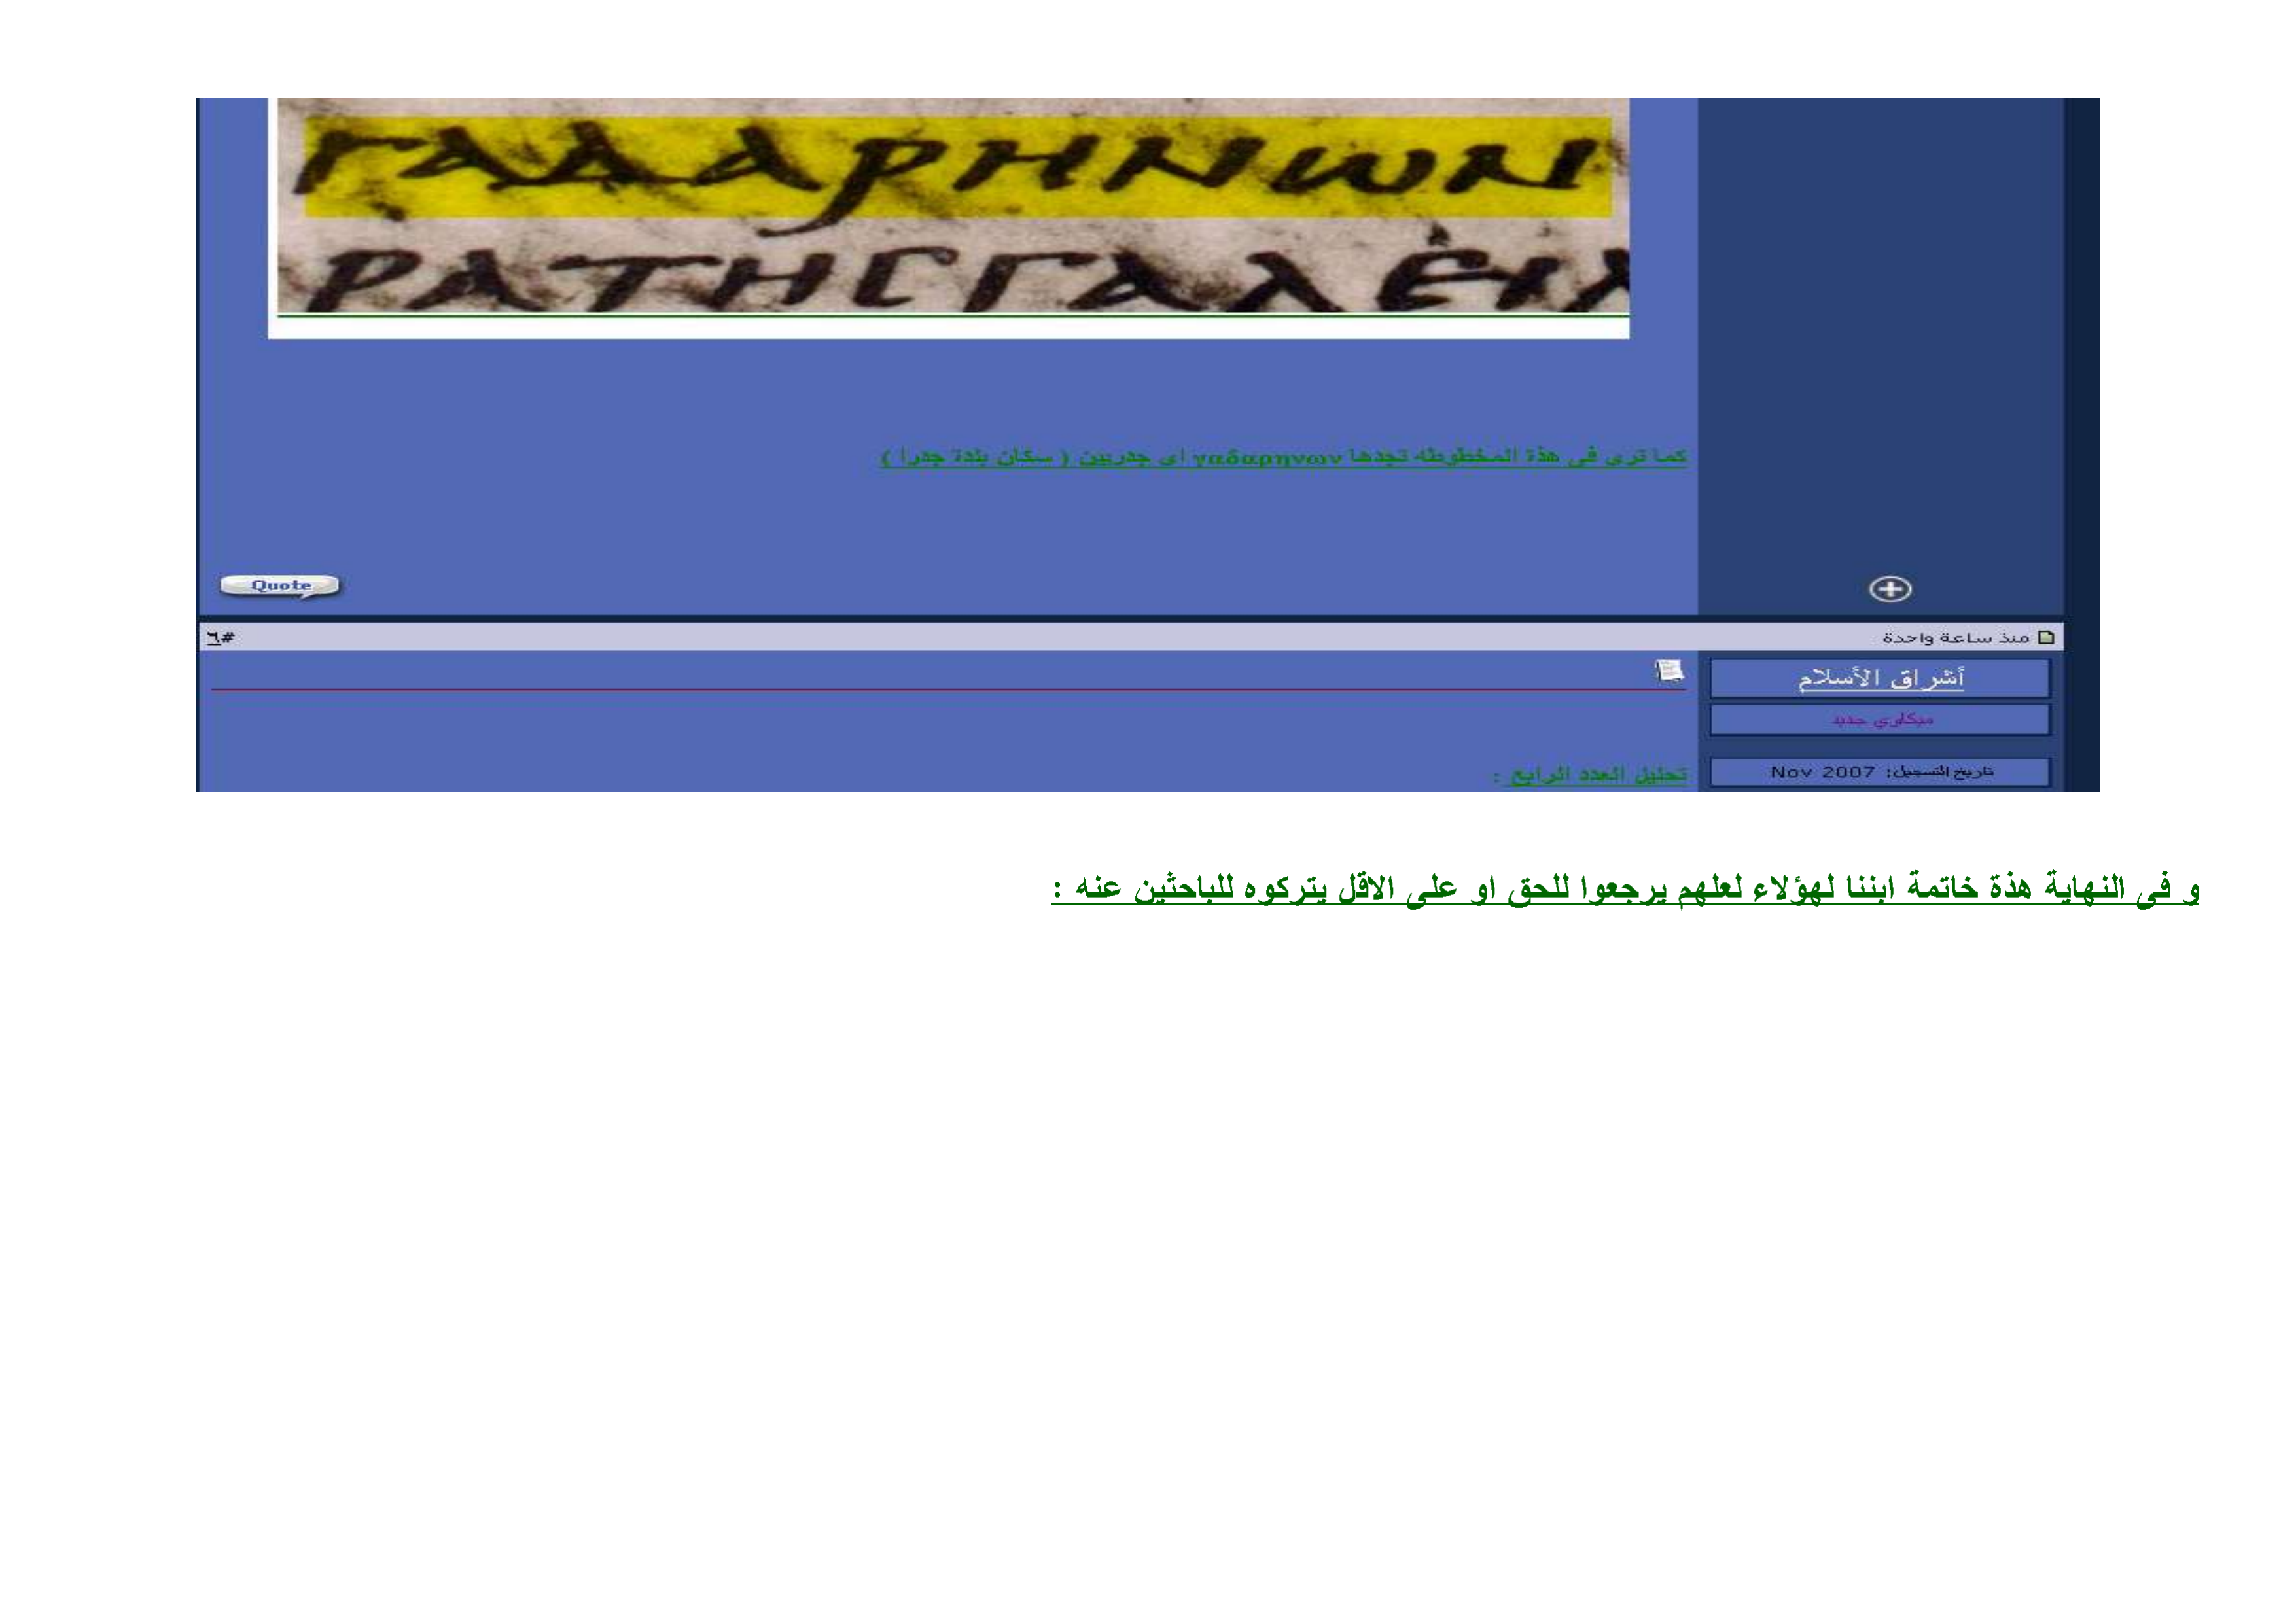 ΓΑΔΑΡΗΝωΝ
ΡΑΤΗϹΓΑΛΕΙΛ
كما ترى فى هذة المخطوطه تجدها γαδαρηνων اى جدريين ( سكان بلدة جدرا )
Quote
منذ ساعة واحدة
#٦
أشراق الأسلام
ميكاوي جديد
تاريخ التسجيل: Nov 2007
تحليل العدد الرابع :
و فى النهاية هذة خاتمة ابننا لهؤلاء لعلهم يرجعوا للحق او على الاقل يتركوه للباحثين عنه :